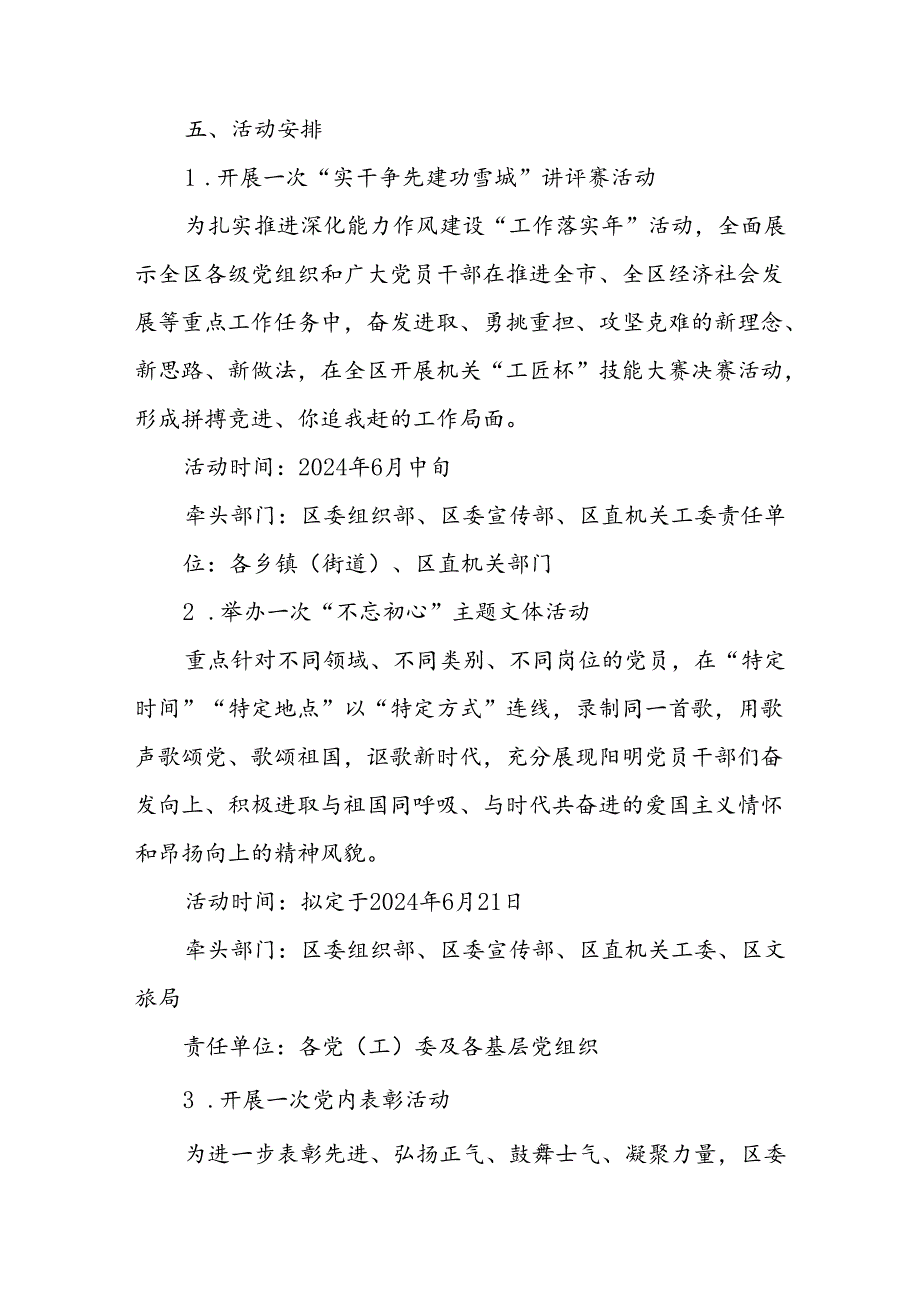 五、活动安排
1 .开展一次“实干争先建功雪城”讲评赛活动
为扎实推进深化能力作风建设“工作落实年”活动，全面展
示全区各级党组织和广大党员干部在推进全市、全区经济社会发
展等重点工作任务中，奋发进取、勇挑重担、攻坚克难的新理念、
新思路、新做法，在全区开展机关“工匠杯”技能大赛决赛活动，
形成拼搏竞进、你追我赶的工作局面。
活动时间：2024年6月中旬
牵头部门：区委组织部、区委宣传部、区直机关工委责任单
位：各乡镇（街道）、区直机关部门
2 .举办一次“不忘初心”主题文体活动
重点针对不同领域、不同类别、不同岗位的党员，在“特定
时间”“特定地点”以“特定方式”连线，录制同一首歌，用歌
声歌颂党、歌颂祖国，讴歌新时代，充分展现阳明党员干部们奋
发向上、积极进取与祖国同呼吸、与时代共奋进的爱国主义情怀
和昂扬向上的精神风貌。
活动时间：拟定于2024年6月21日
牵头部门：区委组织部、区委宣传部、区直机关工委、区文
旅局
责任单位：各党（工）委及各基层党组织
3 .开展一次党内表彰活动
为进一步表彰先进、弘扬正气、鼓舞士气、凝聚力量，区委